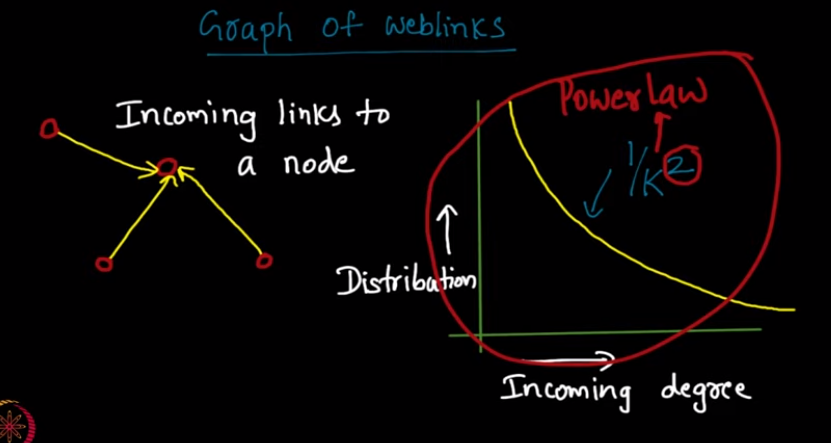 Graph of weblinks
Incoming links to
a node
Power Law
1/K2
Distribution
Incoming degree